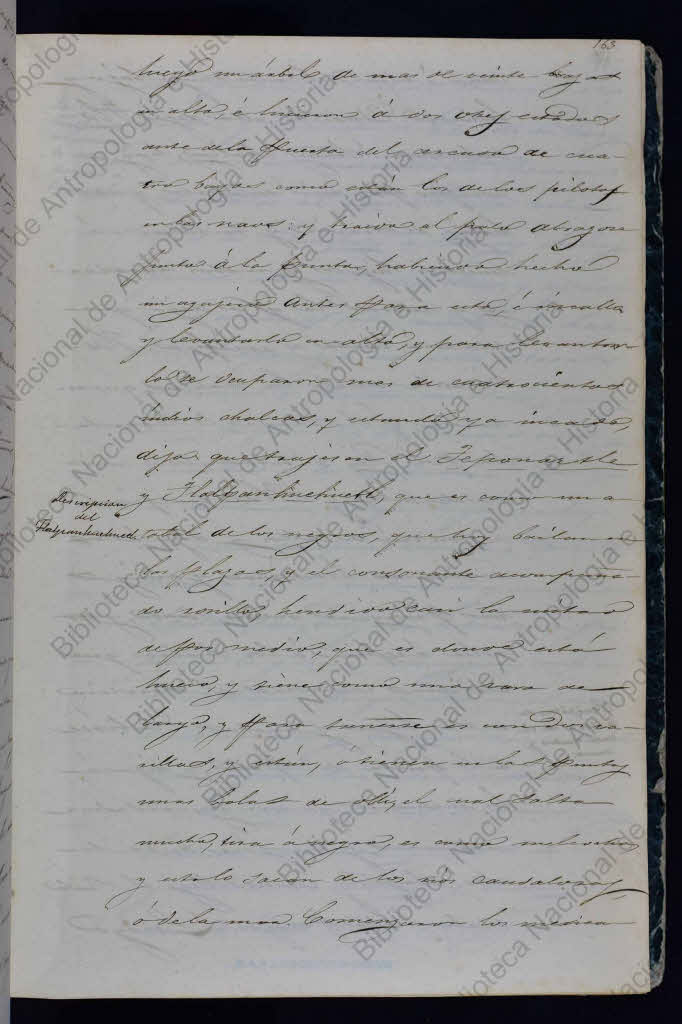 163
luego un árbol de mas de veinte brazas
en alto, é hicieron á dos
ante de la Puerta del de cua-
tro bazas como están los de los pilotos
en las naos: y traido el palo
junto á la punta, habiendo hecho
un agujero antes para esto, é
y levantarlo en alto, y para levantar-
lo se ocuparon mas de cuatrocientos
indios chalcas, y estando ya
dijo que trajesen el Teponaxtle
y Tlalpanhuehuetl, que es como un a
tabal de los negros, que hoy bailan en
las plazas, y el consonante acompaña-
do rollo, hendido casi la mitad
de por medio, que es donde está
hueco, y tiene como una vara de
largo, y para tañerse es con dos va-
rillas, y están, ó tienen en las puntas
unas bolas de olli, el cual salta
mucho, tira á negro, es como
y esto lo sacan de los rios caudalosos,
ó de la mar. Comenzaron los mexica
Descripcion
del
Tlalpanhuehuetl
Biblioteca Nacional de Antropología e Historia